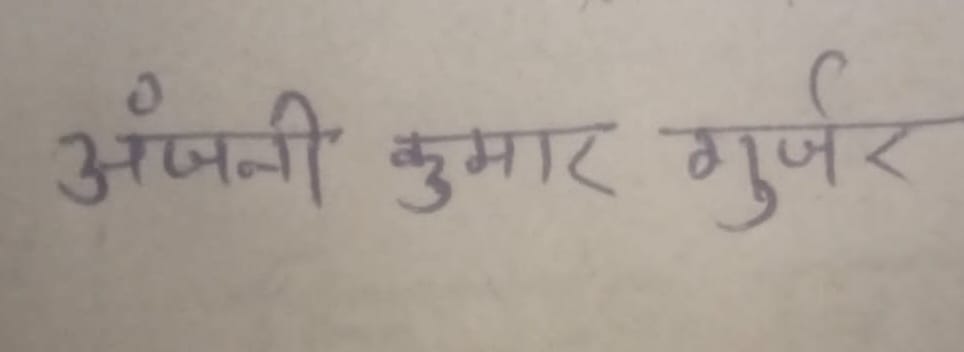 अंजनी कुमार गुर्जर